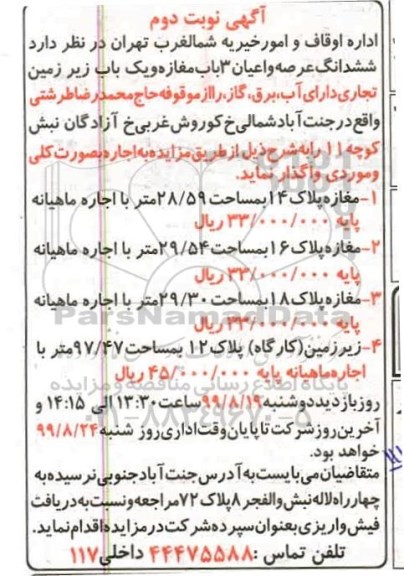 آگهی نوبت دوم
اداره اوقاف و امورخیریه شمالغرب تهران در نظر دارد
ششدانگ عرصه واعیان ۳باب مغازه ویک باب زیر زمین
تجاری دارای آب،برق،گاز،رااز موقوفه حاج محمدرضاطرشتی
واقع درجنت آبادشمالی خ کوروش غربی خ آزادگان نبش
کوچه ۱۱ رابه شرح ذیل از طریق مزایده به اجاره بصورت کلی
وموردی واگذار نماید.
۱-مغازه پلاک ۱۴ بمساحت ۲۸/۵۹متر با اجاره ماهیانه
پایه ۳۳/۰۰۰/۰۰۰ ریال
۲-مغازه پلاک ۱۶ بمساحت ۲۹/۵۴متر با اجاره ماهیانه
پایه ۳۳/۰۰۰/۰۰۰ ریال
۳-مغازه پلاک ۱۸ بمساحت ۲۹/۳۰متر با اجاره ماهیانه
پایه ۳۳/۰۰۰/۰۰۰ ریال
ParsNamadData
۴-زیرزمین(کارگاه) پلاک ۱۲ بمساحت ۹۷/۴۷متر با
اجاره ماهیانه پایه ۴۵/۰۰۰/۰۰۰ ریال
پایگاه اطلاع رسانی مناقصه و مزایده
روزبازدید دوشنبه ۹۹/۸/۱۹ساعت ۱۳:۳۰ الی ۱۴:۱۵ و
۰۲۱-۸۸۳۴۹۶۷۰-۵
آخرین روز شرکت تا پایان وقت اداری روز شنبه ۹۹/۸/۲۴
خواهد بود.
متقاضیان می بایست به آدرس جنت آبادجنوبی نرسیده به
چهارراه لاله نبش والفجر ۸ پلاک ۷۲مراجعه ونسبت به دریافت
فیش واریزی بعنوان سپرده شرکت در مزایده اقدام نماید.
تلفن تماس :۴۴۴۷۵۵۸۸ داخلی ۱۱۷